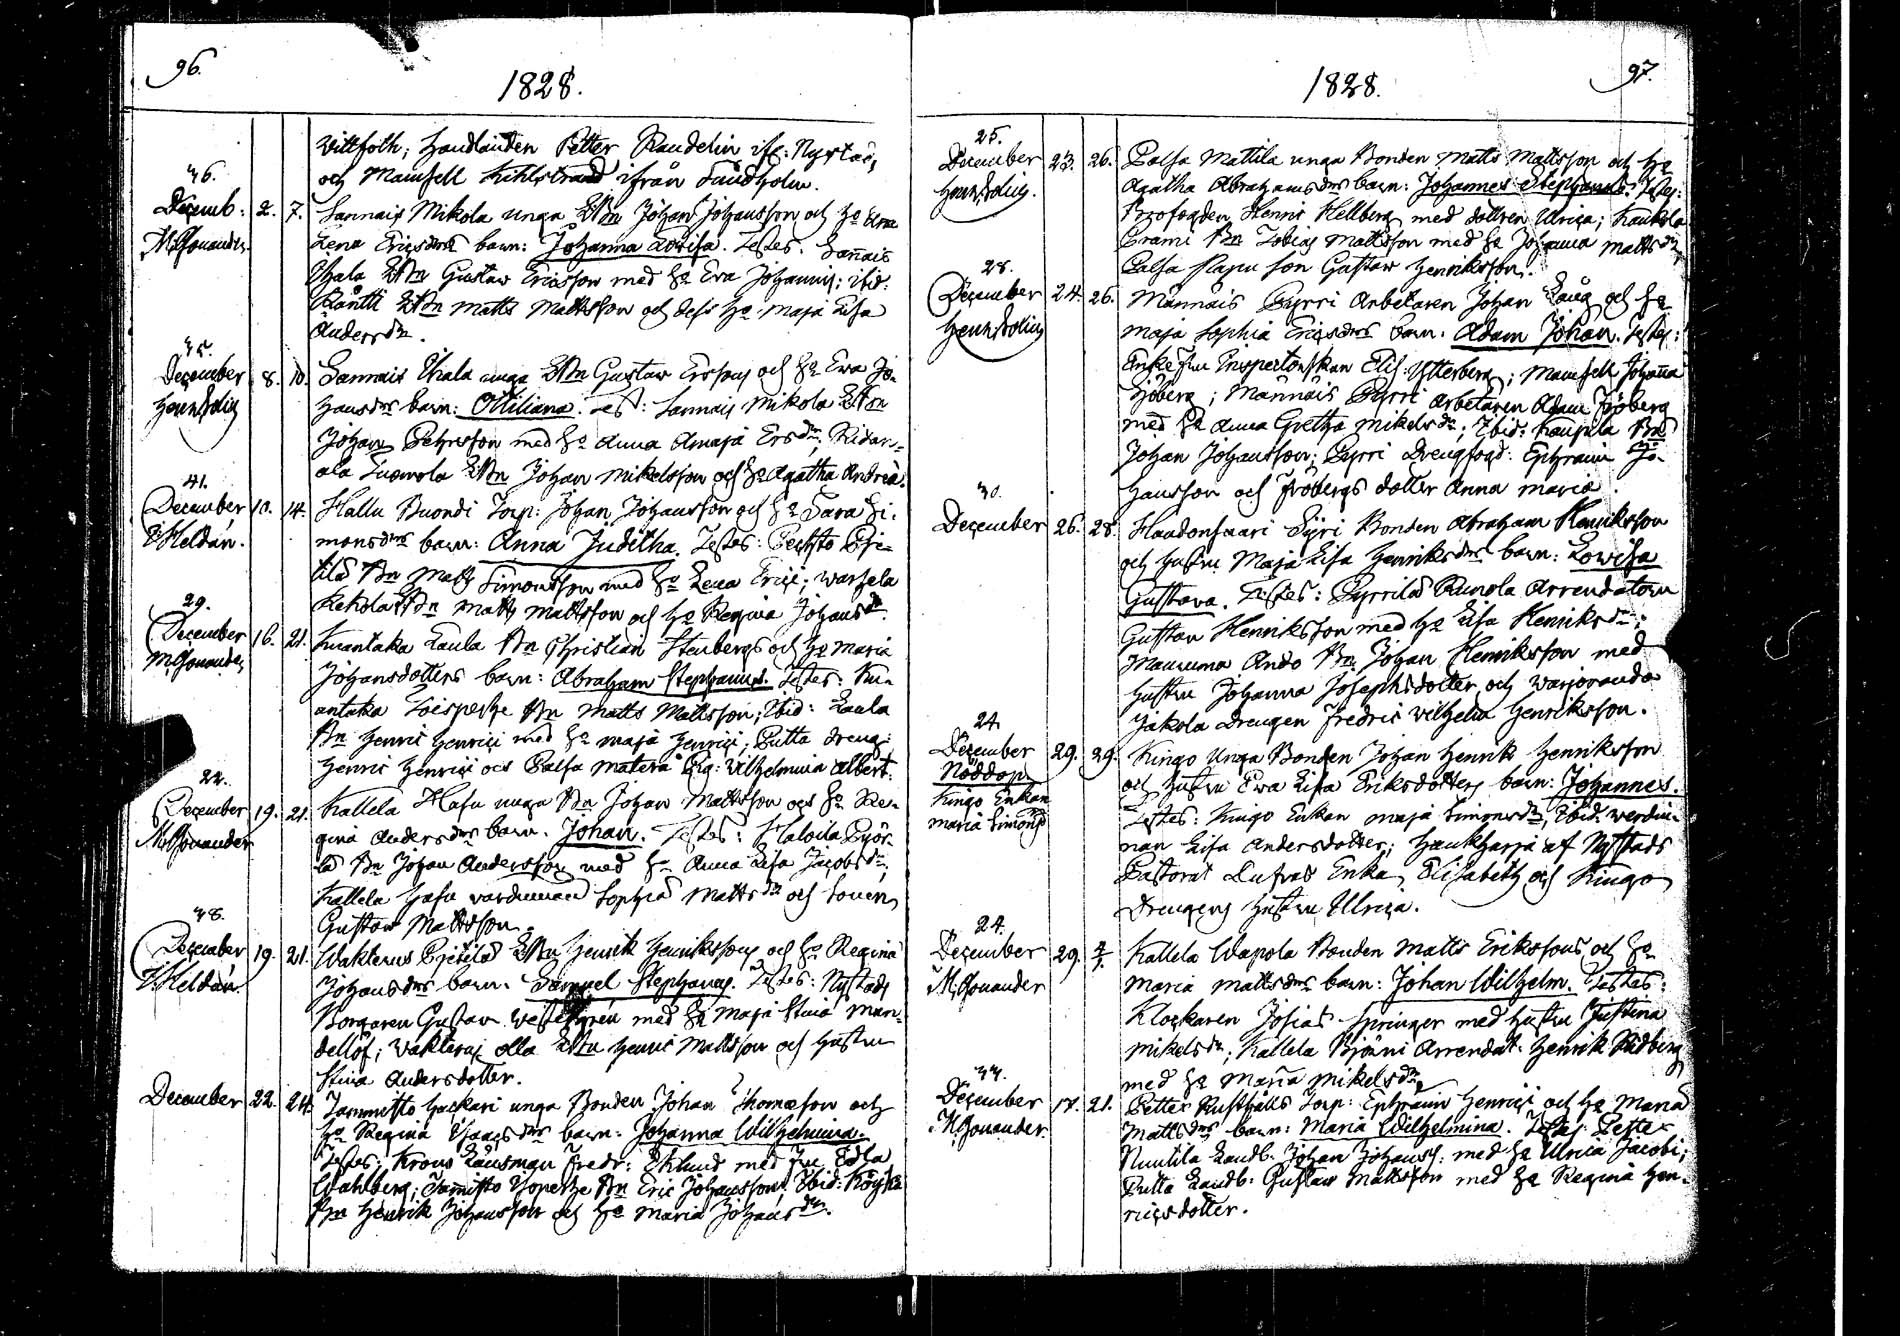 96.
1828.
Wittfoth; Handlanden Petter Randelin ifr: Nystad,
och Mamsell Kihlstrand ifrån Sundholm.
36.
Decemb: 2. 7. Sannais Mikola unga Bdn Johan Johansson och h:o
M. Gonander. Lena Ericsdrs barn: Johanna Lovisa. Testes: Sannais
Uhala Bdn Gustav Ericsson med ho Eva Johannis; ibid:
Bdn Matts Mattsson och dess ho Maja Lisa
Andersdr.
35.
December 8. 10. Sannais Uhala unga Bdn Gustav Erssons och ho Eva Jo-
hansdrs barn: Ottiliana. Test: Sannais Mikola Bdn
Johan Pehrsson med ho Anna Maja Ersdr; Ridan-
ala Bdn Johan Mikelsson och ho Agatha Andreæ.
41.
December 10. 14. Hallu Ruondi Torp: Johan Johansson och ho Sara Si-
V. Heldán. monsdrs barn: Anna Juditha. Testes:
tilä Bn Matts Simonsson med ho Lena Erici; Warhela
Kekola Bn Matts Mattsson och ho Regina Johansdr.
29.
December 16. 21. Kuantaka Laula Bn Christian Stenbergs och ho Maria
M. Gonander, Johansdotters barn: Abraham Stephanus. Testes: Ku-
antaka Bn Matts Mattsson; Ibid: Laula
Bn Henric Henrici med ho Maja Henrici; Putta dreng:
Henric Henrici och Palsa Matera Pig: Vilhelmina Albert.
22.
December 19. 21. Kallela Hasu unga Bn Johan Mattsson och ho Re-
M. Gonander gina Andersdrs barn: Johan. Testes:
Bn Johan Andersson med ho Anna Lisa Jacobsdr;
Kallela Hasu värdinnan Sophia Mattsdr och Sonen
Gustav Mattsson.
38.
December 19. 21. Wakterus Prjetilä Bdn Henrik Henrikssons och ho Regina
V. Heldán. Johansdrs barn: Samuel Stephanus. Testes: Nystads
Borgaren Gustav Westergrén med ho Maja Stina Man-
dellöf; Wakterus Olla Bdn Henric Mattsson och hustru
Stina Andersdotter.
December 22. 24. Jammitto Hackari unga Bonden Johan Thomæson och
ho Regina Isaacsdrs barn: Johanna Wilhelmina.
Testes: Krono Länsman Fredr: Eklund med fru Edla
Wahlberg; Jammitto Bn Eric Johansson; Ibid:
Bn Henrik Johansson och ho Maria Johansdr.
1828.
97.
25.
December 23. 26. Palsa Mattila unga Bonden Matts Mattsson och ho
Agatha Abrahamsdrs barn: Johannes Stephanus. Testes:
Profogden Henric Hellberg med dottren Ulrica; Kaukola
Prami Bn Tobias Mattsson med ho Johanna Mattsdr,
Palsa son Gustav Henriksson.
28.
December 24. 26. Männäis Pyrri Arbetaren Johan Lång och ho
Maja Sophia Ericsdrs barn: Adam Johan. Testes:
Enke fru Inspectorskan Elis: Ytterberg; Mamsell Johanna
Sjöberg; Männäis Pyrri Arbetaren Adam Fröberg
med ho Anna Gretha Mikelsdr; Ibid: Kaupila Bn
Johan Johansson; Pyrri Drengfogd: Ephraim Jo-
hansson och Fröbergs dotter Anna Maria.
30.
December 26. 28. Haudonsaari Syri Bonden Abraham Henriksson
och hustru Maja Lisa Henriksdrs barn: Lowisa
Gustava. Testes: Pyrrilä Runola Arrendatorn
Gustav Henriksson med ho Lisa Henriksdr;
Mauruma Ando Bn: Johan Henriksson med
hustru Johanna Josephsdotter och
Jakola Drengen Fredric Vilhelm Henriksson.
24.
December 29. 29. Kingo Unga Bonden Johan Henrik Henriksson
Nöddop. och hustru Eva Lisa Eriksdotters barn: Johannes.
Kingo Enkan Testes: Kingo Enkan Maja Simonsdr, Ibid: werdin-
Maria Simonsdr nan Lisa Andersdotter; Haukharja af Nystads
Pastorat Enka Elisabeth och Kingo
Drengens hustru Ulrica.
24.
December 29. 2/1. Kallela Wapola Bonden Matts Erikssons och ho
M. Gonander Maria Mattsdrs barn: Johan Wilhelm. Testes:
Klockaren Josias Springer med hustru Justina
Mikelsdr, Kallela Björni Arrendat: Henrik Widberg
med ho Maria Mikelsdr.
33.
December 17. 21. Petter Rusthålls Torp: Ephraim Henrici och ho Maria
M. Gonander. Mattsdrs barn: Maria Wilhelmina. Testes: Petter
Nuutila Landb: Johan Johanss: med ho Ulrica Jacobi;
Putta Landb: Gustav Mattsson med ho Regina Hen-
ricsdotter.